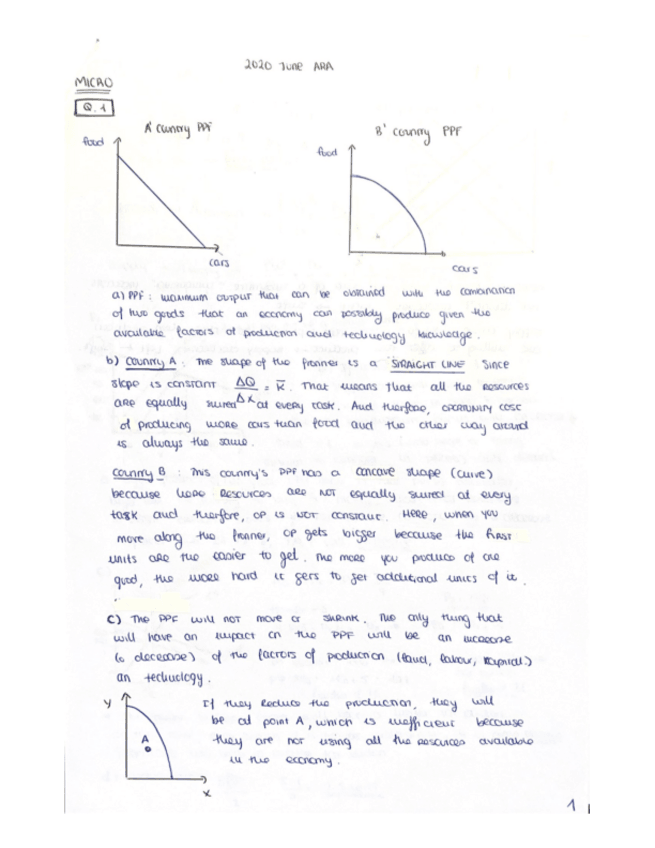 2020 June ARA
MICRO
Q.1
A' country PPF
B' country PPF
food
food
cars
cars
a) PPF : maximum output that can be obtained with the combination
of two goods that an economy can possibly produce given the
available factors of production and technology knowledge.
b) COUNTRY A : The shape of the frontier is a STRAIGHT LINE since
slope is constant ΔQ/ΔX = K̅. That means that all the resources
are equally suited at every task. And therefore, OPORTUNITY COST
of producing more cars than food and the other way around
is always the same.
COUNTRY B : This country's PPF has a concave shape (curve)
because here RESOURCES ARE NOT equally suited at every
task and therfore, OP is NOT constant. HERE, when you
move along the frontier, OP gets bigger because the first
units are the easier to get. The more you produce of one
good, the more hard it gets to get additional units of it.
c) The PPF will not move or shrink. The only thing that
will have an impact on the PPF will be an increase
(o decrease) of the factors of production (land, labour, kapital)
an technology.
y
A
x
If they reduce the production, they will
be at point A, which is inefficient because
they are not using all the resources available
in the economy.
1